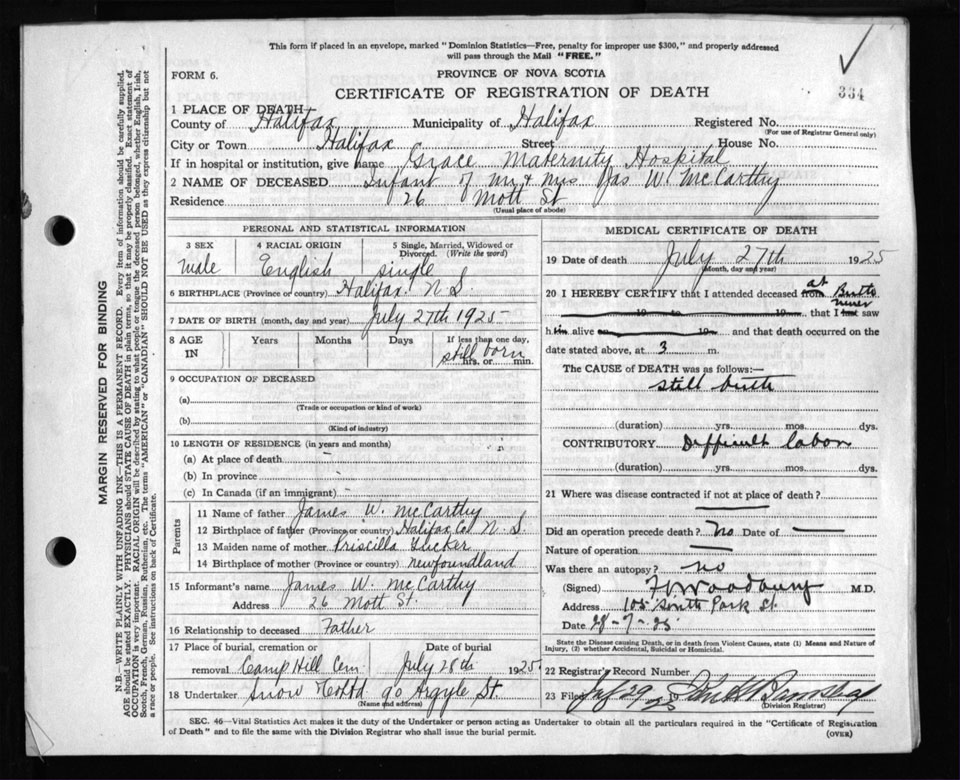 This form if placed in an envelope, marked "Dominion Statistics—Free, penalty for improper use $300," and properly addressed
will pass through the Mail "FREE."
FORM 6.
PROVINCE OF NOVA SCOTIA
CERTIFICATE OF REGISTRATION OF DEATH
334
1 PLACE OF DEATH
County of Halifax Municipality of Halifax Registered No.
(For use of Registrar General only)
City or Town Halifax Street House No.
If in hospital or institution, give name Grace Maternity Hospital
2 NAME OF DECEASED Infant of Mr & Mrs Jas W. McCarthy
Residence 26 Mott St
(Usual place of abode)
PERSONAL AND STATISTICAL INFORMATION
3 SEX 4 RACIAL ORIGIN 5 Single, Married, Widowed or
Divorced. (Write the word)
Male English single
6 BIRTHPLACE (Province or country) Halifax N.S.
7 DATE OF BIRTH (month, day and year) July 27th 1925
8 AGE Years Months Days If less than one day,
IN still born
hrs. or min.
9 OCCUPATION OF DECEASED
(a)
(Trade or occupation or kind of work)
(b)
(Kind of industry)
10 LENGTH OF RESIDENCE (in years and months)
(a) At place of death
(b) In province
(c) In Canada (if an immigrant)
Parents
11 Name of father James W. McCarthy
12 Birthplace of father (Province or country) Halifax Co N.S
13 Maiden name of mother Priscilla
14 Birthplace of mother (Province or country) Newfoundland
15 Informant's name James W. McCarthy
Address 26 Mott St.
16 Relationship to deceased Father
17 Place of burial, cremation or
removal Camp Hill Cem July 28th 1925
Date of burial
18 Undertaker Snow & Co Ltd 90 Argyle St
(Name and address)
MEDICAL CERTIFICATE OF DEATH
19 Date of death July 27th 1925
(Month, day and year)
20 I HEREBY CERTIFY that I attended deceased from at Birth
19 to 19 that I last never saw
h im alive on 19 and that death occurred on the
date stated above, at 3 m.
The CAUSE of DEATH was as follows:—
Still birth
(duration) yrs. mos. dys.
CONTRIBUTORY Difficult labor
(duration) yrs. mos. dys.
21 Where was disease contracted if not at place of death?
Did an operation precede death? No Date of
Nature of operation
Was there an autopsy? no
(Signed) Woodbury M.D.
Address 105 South Park St
Date 28-7-25
State the Disease causing Death, or in death from Violent Causes, state (1) Means and Nature of
Injury, (2) whether Accidental, Suicidal or Homicidal.
22 Registrar's Record Number
23 Filed July 29 25
(Division Registrar)
SEC. 46—Vital Statistics Act makes it the duty of the Undertaker or person acting as Undertaker to obtain all the particulars required in the "Certificate of Registration
of Death" and to file the same with the Division Registrar who shall issue the burial permit.
(OVER)
MARGIN RESERVED FOR BINDING
N.B.—WRITE PLAINLY WITH UNFADING INK—THIS IS A PERMANENT RECORD. Every item of information should be carefully supplied.
AGE should be stated EXACTLY. PHYSICIANS should STATE CAUSE OF DEATH in plain terms, so that it may be properly classified. Exact statement of
OCCUPATION is very important. RACIAL ORIGIN will be described by stating to what people or tongue the deceased person belonged, whether English, Irish,
Scotch, French, German, Russian, Ruthenian, etc. The terms "AMERICAN" or "CANADIAN" SHOULD NOT BE USED as they express citizenship but not
a race or people. See instructions on back of Certificate.